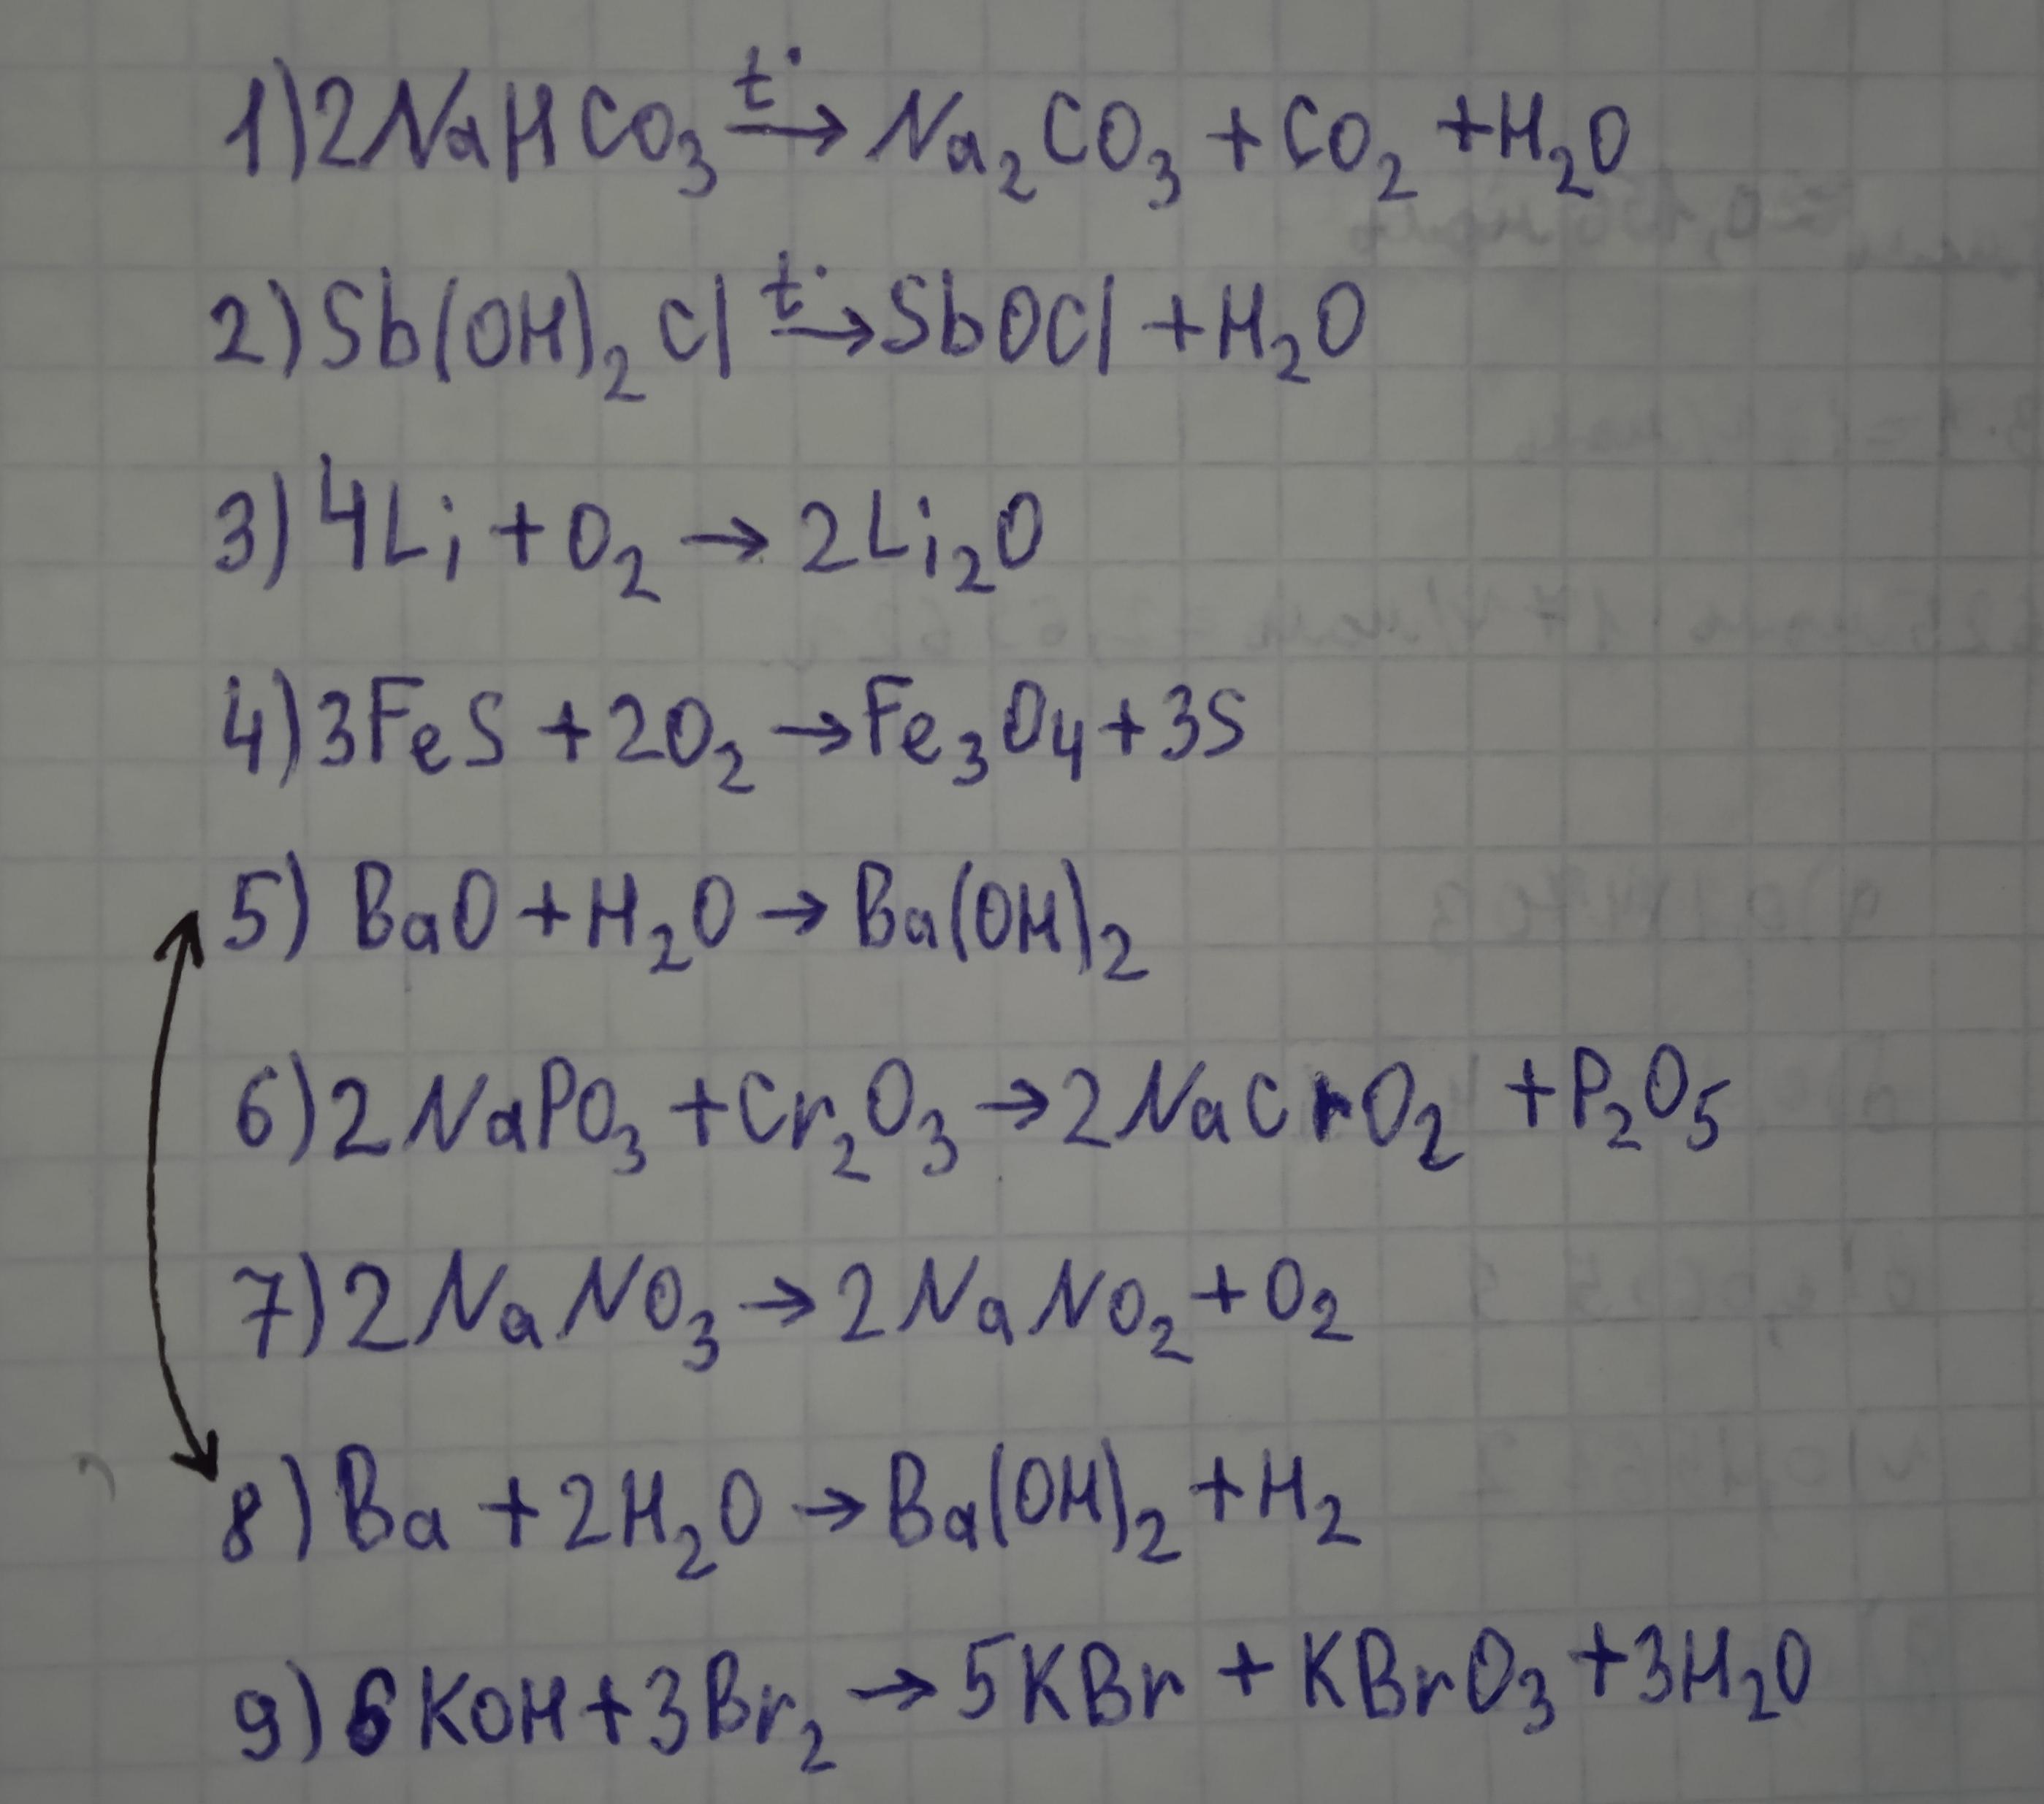 1) 2NaHCO₃ t° → Na₂CO₃ + CO₂ + H₂O
2) Sb(OH)₂Cl t° → SbOCl + H₂O
3) 4Li + O₂ → 2Li₂O
4) 3FeS + 2O₂ → Fe₃O₄ + 3S
5) BaO + H₂O → Ba(OH)₂
6) 2NaPO₃ + Cr₂O₃ → 2NaCrO₂ + P₂O₅
7) 2NaNO₃ → 2NaNO₂ + O₂
8) Ba + 2H₂O → Ba(OH)₂ + H₂
9) 6KOH + 3Br₂ → 5KBr + KBrO₃ + 3H₂O